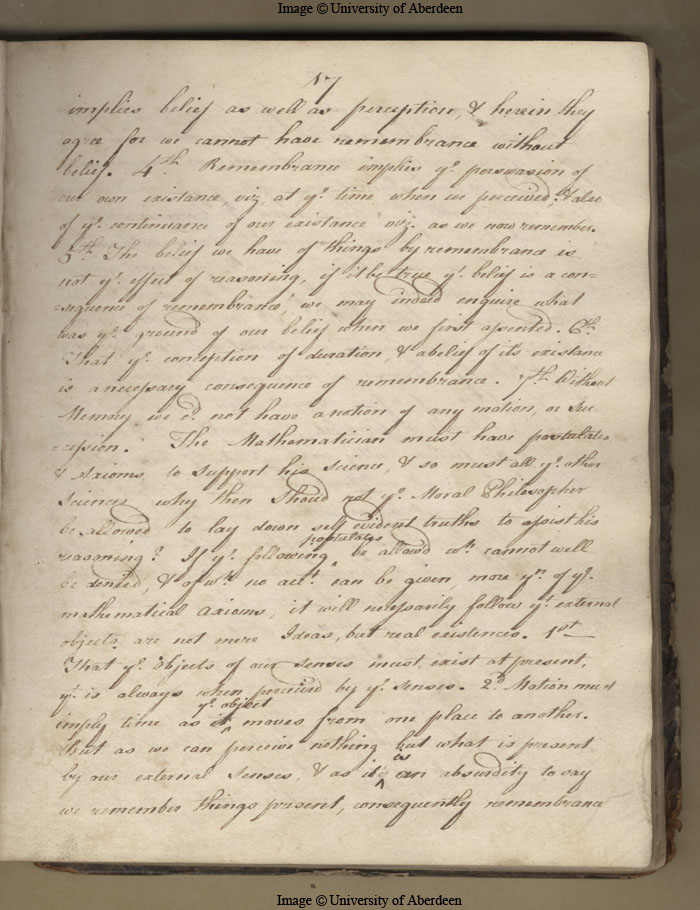 Image © University of Aberdeen
17
implies belief as well as perception, & herein they
agree for we cannot have remembrance without
belief. 4th. Remembrance implies ye. perswasion of
our own existance, viz. at ye. time when we perceived, & also
of ye. continuance of our existance viz. as we now remember.
5th. The belief we have of things by remembrance is
not ye. effect of reasoning, if it be true ye. belief is a con=
=sequence of remembrance, we may indeed enquire what
was ye. ground of our belief when we first assented. 6th.
That ye. conception of duration, & a belief of its existance
is a necessary consequence of remembrance. 7th. Without
Memory we cd. not have a notion of any motion, or Suc
=cession. The Mathematician must have postulates
& Axioms to support his science, & so must all ye. other
sciences why then Should not ye. Moral Philosopher
be allowed to lay down self evident truths to assist his
reasoning? If ye. following postulates be allowd wh. cannot well
be denied, & of wh. no acct. can be given, more yn. of ye.
mathematical axioms, it will necessarily follow yt. external
objects are not mere Ideas, but real existences. 1st
That ye. objects of our senses must exist at present,
yt. is always when perceived by ye. senses. 2d. Motion must
imply time as ye. object moves from one place to another.
But as we can perceive nothing but what is present
by our external senses, & as it is an absurdity to say
we remember things present, consequently remembrance
Image © University of Aberdeen